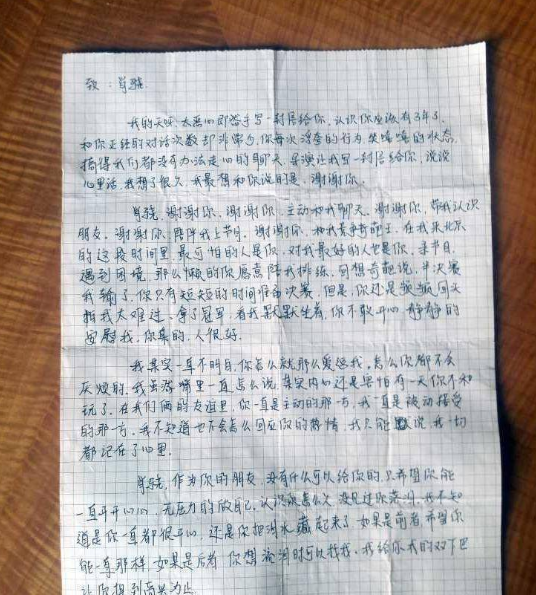 致：肖骁
我的天呀 太恶心即将手写一封信给你。认识你应该有3年了，
和你正经的对话次数却非常少，你每次浮夸的行为 笑嘻嘻的状态
搞得我们都没有办法走心的聊天，导演让我写一封信给你，说说
心里话，我想了很久，我最想和你说的是，谢谢你。
肖骁，谢谢你，谢谢你，主动和我聊天，谢谢你，带我认识
朋友，谢谢你，陪伴我上节目，谢谢你，和我竞争奇葩王，在我来北京
的这段时间里，最可怕的人是你，对我最好的人也是你，录节目，
遇到困境，那么懒的你愿意陪我排练，回想奇葩说，半决赛
我输了，你只有短短的时间准备决赛，但是，你还是
我太难过，拿了冠军，看我默默坐着，你不敢开心，静静的
安慰我，你真的，人很好。
我其实一直不明白，你怎么就那么爱逗我，怎么你都不会
厌烦的，我虽然嘴里一直怎么说，其实内心还是害怕有一天你不和
玩了，在我们俩的友谊里，你一直是主动的那一方，我一直是被动接受
的那一方，我不知道也不会怎么回应你的热情，我只能默说，我一切
都记在了心里。
肖骁，作为你的朋友，没有什么可以给你的，只希望你能
一直开开心心，无压力的做自己，认识你怎么久，没见过你落泪，我不知
道是你一直都很开心，还是你把泪水藏起来了，如果是前者，希望你
能一直那样，如果是后者，你想流泪时可以找我，我给你我的双下巴
让你摸到高兴为止